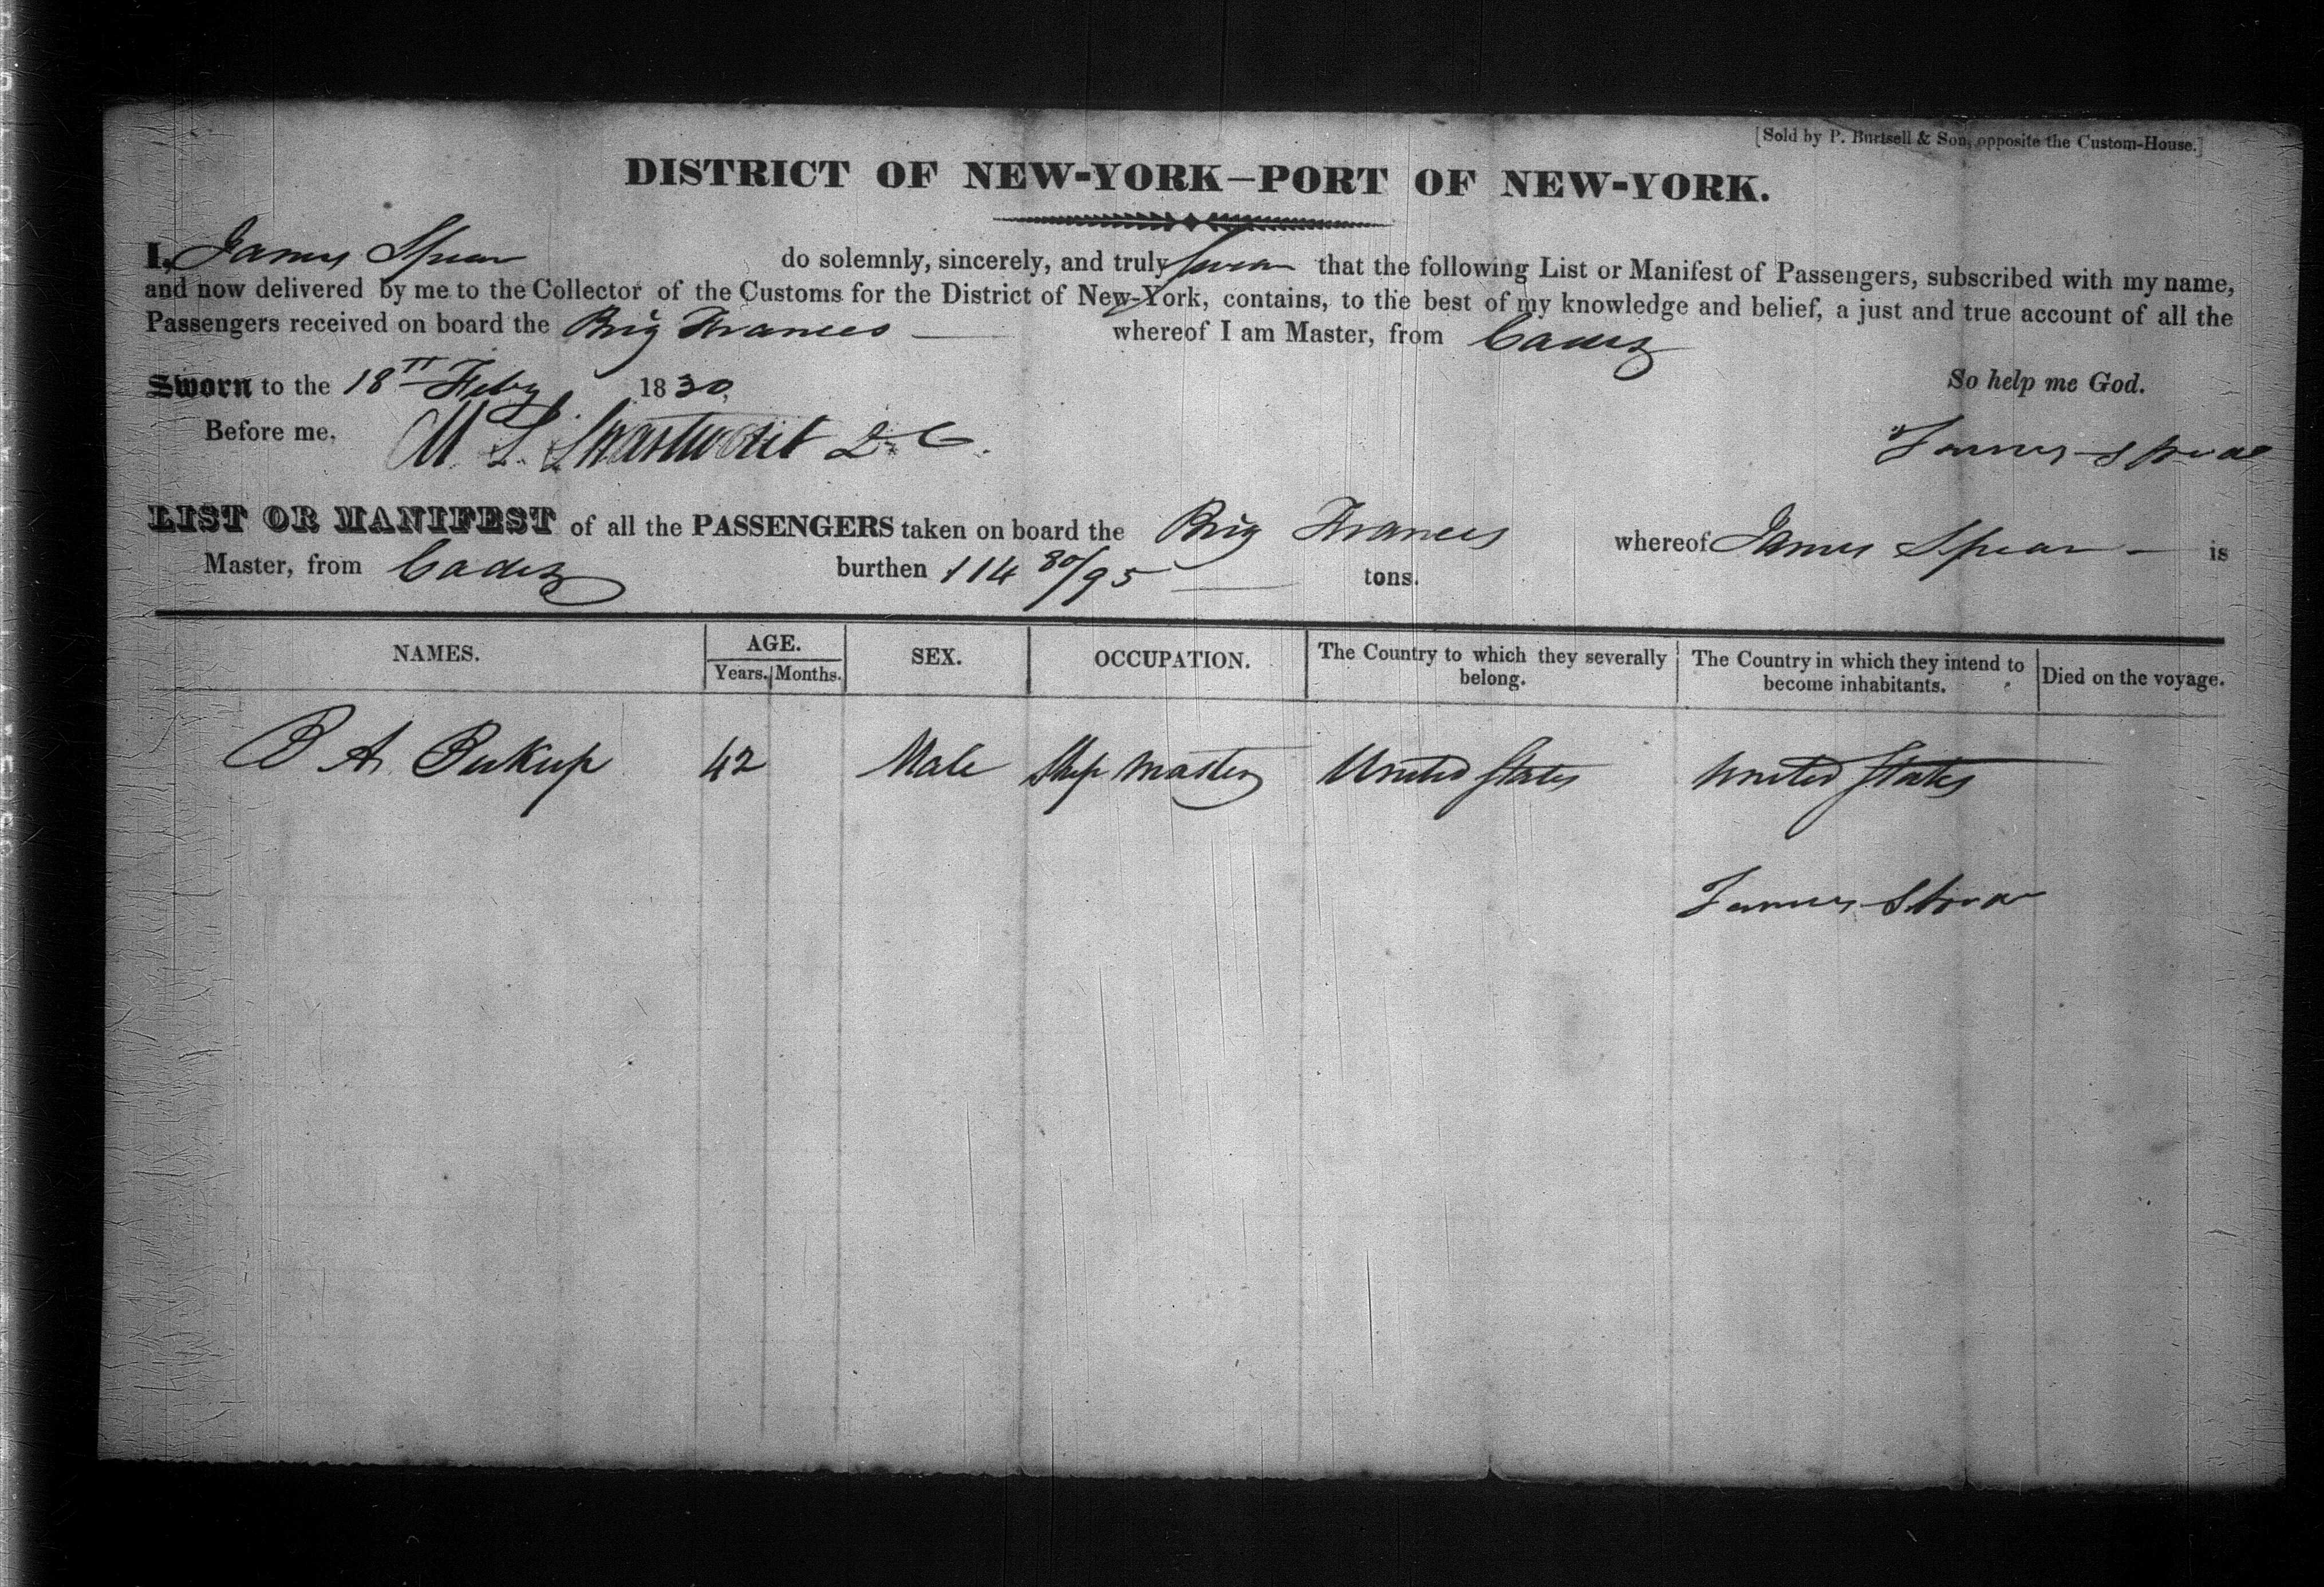 [Sold by P. Burtsell & Son, opposite the Custom-House.]
DISTRICT OF NEW-YORK—PORT OF NEW-YORK.
I, James Spear do solemnly, sincerely, and truly swear that the following List or Manifest of Passengers, subscribed with my name,
and now delivered by me to the Collector of the Customs for the District of New-York, contains, to the best of my knowledge and belief, a just and true account of all the
Passengers received on board the Brig Frances whereof I am Master, from Cadiz
Sworn to the 18th Feby 1830, So help me God.
Before me, James Spear
LIST OR MANIFEST of all the PASSENGERS taken on board the Brig Frances whereof James Spear is
Master, from Cadiz burthen 114 80/95 tons.
NAMES. AGE. Years. Months. SEX. OCCUPATION. The Country to which they severally belong. The Country in which they intend to become inhabitants. Died on the voyage.
B A 42 Male Ship Master United States United States
James Spear